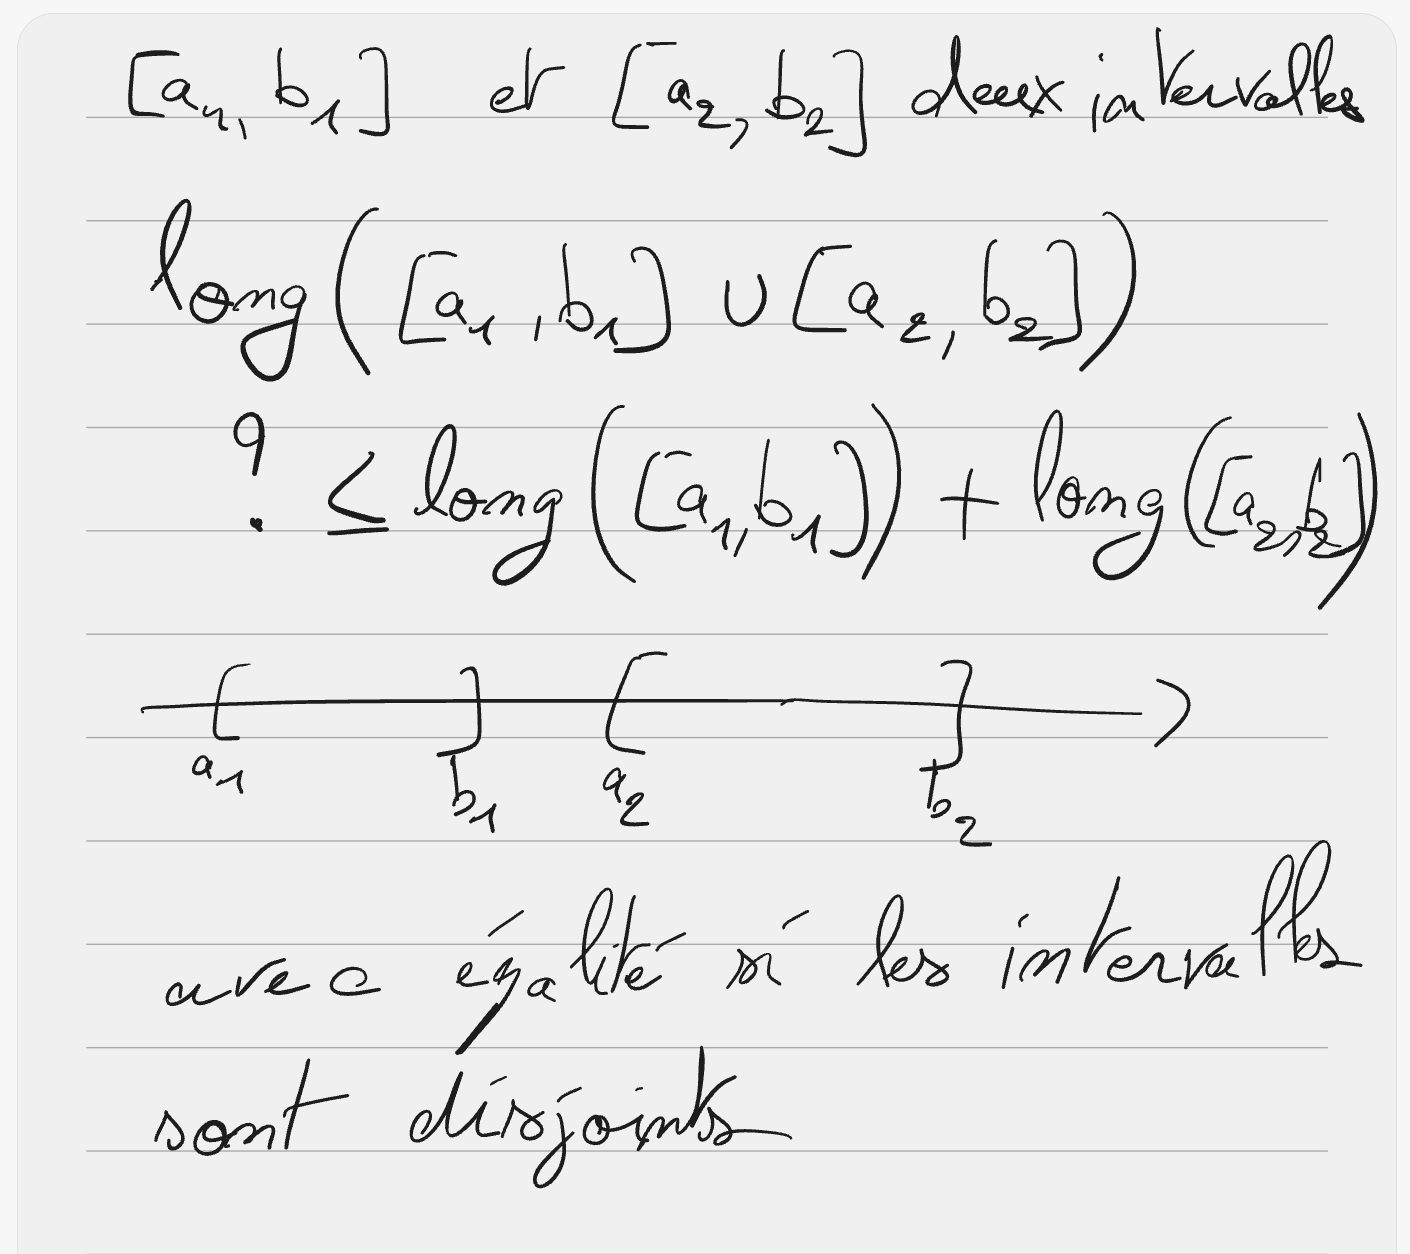 [a₁, b₁] et [a₂, b₂] deux intervalles
long([a₁, b₁] ∪ [a₂, b₂])
? ≤ long([a₁, b₁]) + long([a₂, b₂])
a₁ b₁ a₂ b₂
avec égalité si les intervalles
sont disjoints